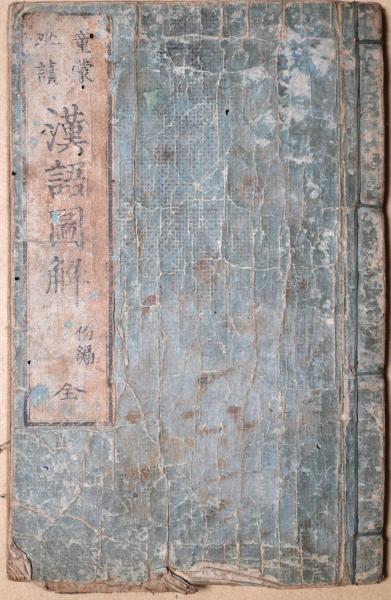 童蒙
必讀
漢語圖解
初編
全